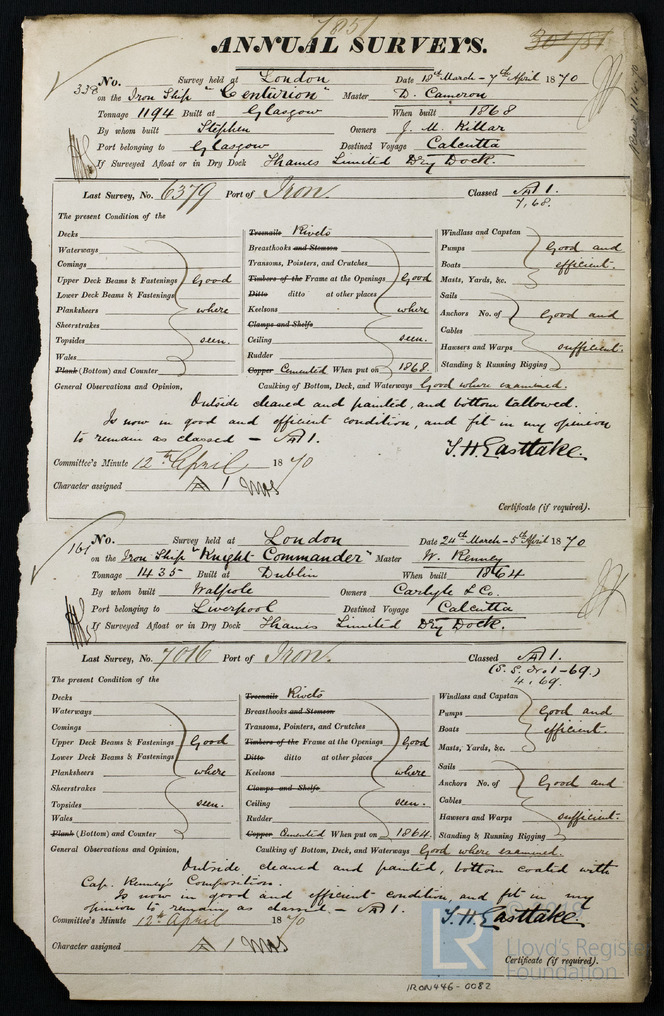 785
ANNUAL SURVEYS.
338 No. Survey held at London Date 18th March - 7th April 1870
on the Iron Ship "Centurion" Master D. Cameron
Tonnage 1194 Built at Glasgow When built 1868
By whom built Stephen Owners J. M. Killar
Port belonging to Glasgow Destined Voyage Calcutta
If Surveyed Afloat or in Dry Dock Thames Limited Dry Dock.
Last Survey, No. 6379 Port of Iron. Classed A 1.
7,68.
The present Condition of the
Decks Treenails Rivets Windlass and Capstan
Waterways Breasthooks and Stemson Pumps Good and
Comings Transoms, Pointers, and Crutches Boats efficient.
Upper Deck Beams & Fastenings Good Timbers of the Frame at the Openings Good Masts, Yards, &c.
Lower Deck Beams & Fastenings Ditto ditto at other places Sails
Planksheers where Keelsons where Anchors No. of Good and
Sheerstrakes Clamps and Shelfs Cables
Topsides seen. Ceiling seen. Hawsers and Warps sufficient.
Wales Rudder Standing & Running Rigging
Plank (Bottom) and Counter Copper Cemented When put on 1868.
General Observations and Opinion, Caulking of Bottom, Deck, and Waterways Good where examined.
Outside cleaned and painted, and bottom tallowed.
Is now in good and efficient condition, and fit in my opinion
to remain as classed - A 1.
T. H. Eastlake.
Committee's Minute 12th April 1870
Character assigned A 1
Certificate (if required).
161 No. Survey held at London Date 24th March - 5th April 1870
on the Iron Ship "Knight Commander" Master W. Kenney
Tonnage 1435 Built at Dublin When built 1864
By whom built Walpole Owners Carlyle & Co.
Port belonging to Liverpool Destined Voyage Calcutta
If Surveyed Afloat or in Dry Dock Thames Limited Dry Dock.
Last Survey, No. 7016 Port of Iron. Classed A 1.
(S. S. No. 1-69.)
4,69.
The present Condition of the
Decks Treenails Rivets Windlass and Capstan
Waterways Breasthooks and Stemson Pumps Good and
Comings Transoms, Pointers, and Crutches Boats efficient.
Upper Deck Beams & Fastenings Good Timbers of the Frame at the Openings Good Masts, Yards, &c.
Lower Deck Beams & Fastenings Ditto ditto at other places Sails
Planksheers where Keelsons where Anchors No. of Good and
Sheerstrakes Clamps and Shelfs Cables
Topsides seen. Ceiling seen. Hawsers and Warps sufficient.
Wales Rudder Standing & Running Rigging
Plank (Bottom) and Counter Copper Cemented When put on 1864.
General Observations and Opinion, Caulking of Bottom, Deck, and Waterways Good where examined.
Outside cleaned and painted, bottom coated with
Cap. Kenney's Composition.
Is now in good and efficient condition, and fit in my
opinion to remain as classed - A 1.
T. H. Eastlake.
Committee's Minute 12th April 1870
Character assigned A 1
Certificate (if required).
LR
Lloyd's Register
Foundation
IRON446-0082